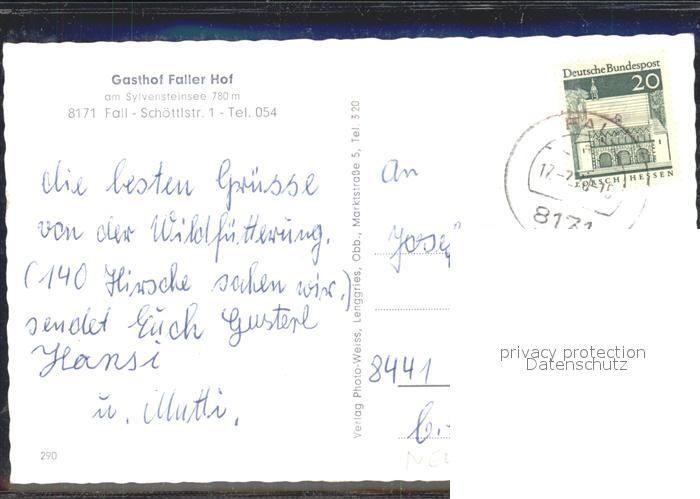 Gasthof Faller Hof
am Sylvensteinsee 780 m
8171 Fall - Schöttlstr. 1 - Tel. 054
die besten Grüsse
von der Wildfütterung.
(140 Hirsche sahen wir.)
sendet Euch Gusterl
Hansi
u. Mutti.
290
Verlag Photo-Weiss, Lenggries, Obb., Marktstraße 5, Tel. 3 20
Deutsche Bundespost
20
LORSCH/HESSEN
FALL
8171
An
Josef
8441
privacy protection
Datenschutz